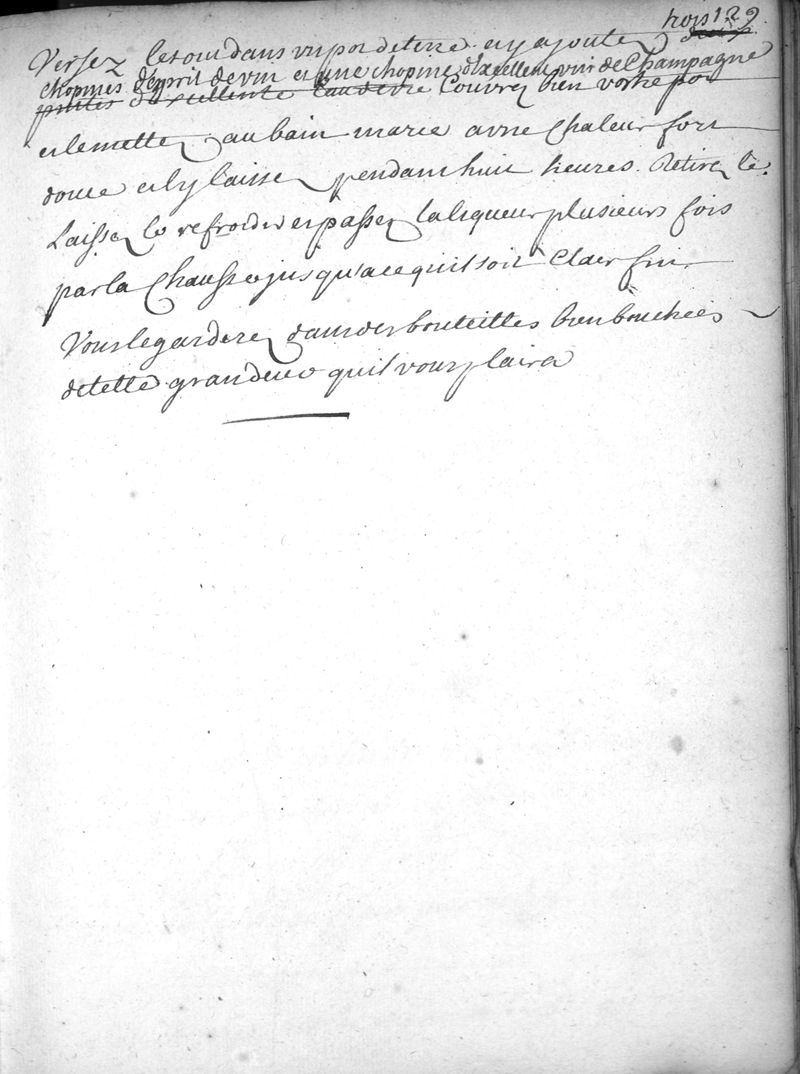 trois 129
Versez le tout dans un pot de terre et y ajoutez deux
chopines d'esprit de vin et une chopine d'excellent vin de Champagne
pintes d'excellente eau de vie Couvrez bien vostre pot
et le mettez au bain marie a une Chaleur fort
douce et ly laissez pendant huit heures. Retirez le.
Laissez le refroidir et passez la liqueur plusieurs fois
par la Chausse jusqu'a ce quil soit Clair fin
Vous le garderez dans des bouteilles bien bouchées
de telle grandeur quil vous plaira